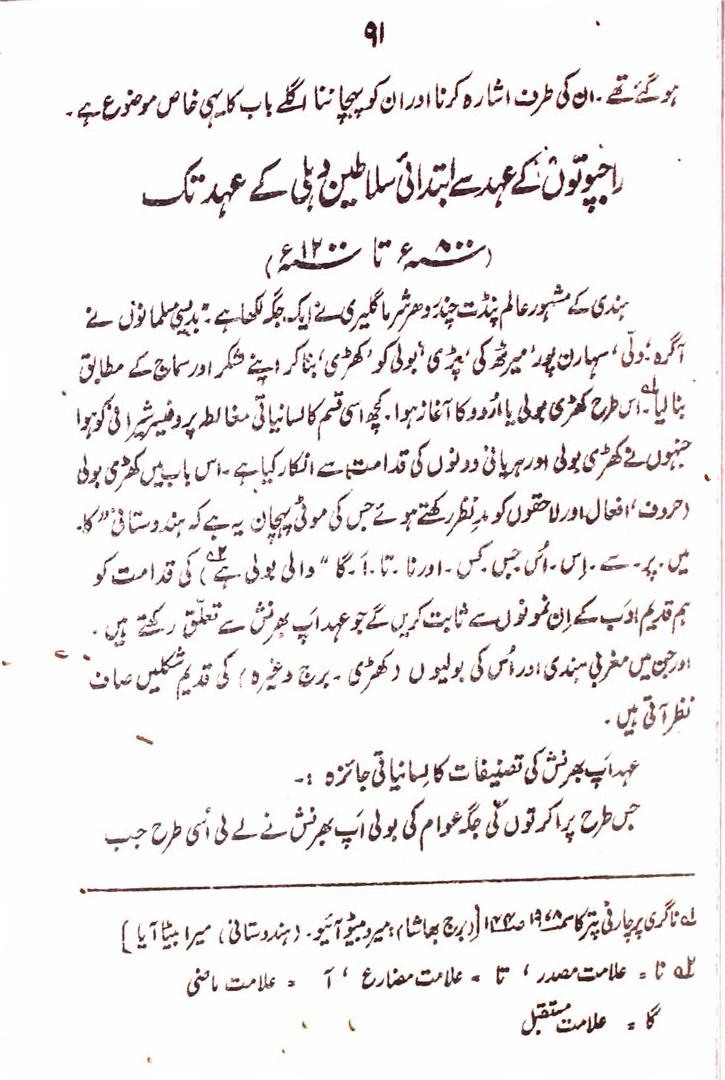 ۹۱
ہو گئے تھے۔ ان کی طرف اشارہ کرنا اور ان کو پہچاننا اگلے باب کا یہی خاص موضوع ہے۔
راجپوتوں کے عہد سے ابتدائی سلاطین دہلی کے عہد تک
(سنہ ۸۰۰ء تا سنہ ۱۲۰۰ء)
ہندی کے مشہور عالم پنڈت چندر دھر شرما گلیری نے ایک جگہ لکھا ہے۔ "بدیسی مسلمانوں نے
آگرہ، دلّی، سہارن پور، میرٹھ کی 'پڑی' بولی کو 'کھڑی' بنا کر اپنے لشکر اور سماج کے مطابق
بنا لیا۱؎۔ اس طرح کھڑی بولی یا اردو کا آغاز ہوا۔ کچھ اسی قسم کا لسانیاتی مغالطہ پروفیسر شیرانی کو ہوا
جنہوں نے کھڑی بولی اور ہریانی دونوں کی قدامت سے انکار کیا ہے۔ اس باب میں کھڑی بولی
(حروف، افعال اور لاحقوں کو مدِ نظر رکھتے ہوئے جس کی موٹی پہچان یہ ہے کہ ہندوستانی "کا۔
میں۔ پر۔ سے۔ اِس۔ اُس جس۔ کس۔ اور نا۔ تا۔ آ۔ گا" والی بولی ہے۲؎) کی قدامت کو
ہم قدیم ادب کے اِن نمونوں سے ثابت کریں گے جو عہد اَپ بھرنش سے تعلّق رکھتے ہیں۔
اور جن میں مغربی ہندی اور اُس کی بولیوں (کھڑی۔ برج وغیرہ) کی قدیم شکلیں صاف
نظر آتی ہیں۔
عہد اَپ بھرنش کی تصنیفات کا لسانیاتی جائزہ :۔
جس طرح پراکرتوں کی جگہ عوام کی بولی اَپ بھرنش نے لے لی اُسی طرح جب
۱؎ ناگری پرچارنی پترکا سمہ ۱۹۷۸ صہ ۲۴۴ [(برج بھاشا) میرو بیٹو آئیو۔ (ہندوستانی) میرا بیٹا آیا]
۲؎ نا = علامت مصدر، تا = علامت مضارع، آ = علامت ماضی
گا = علامت مستقبل